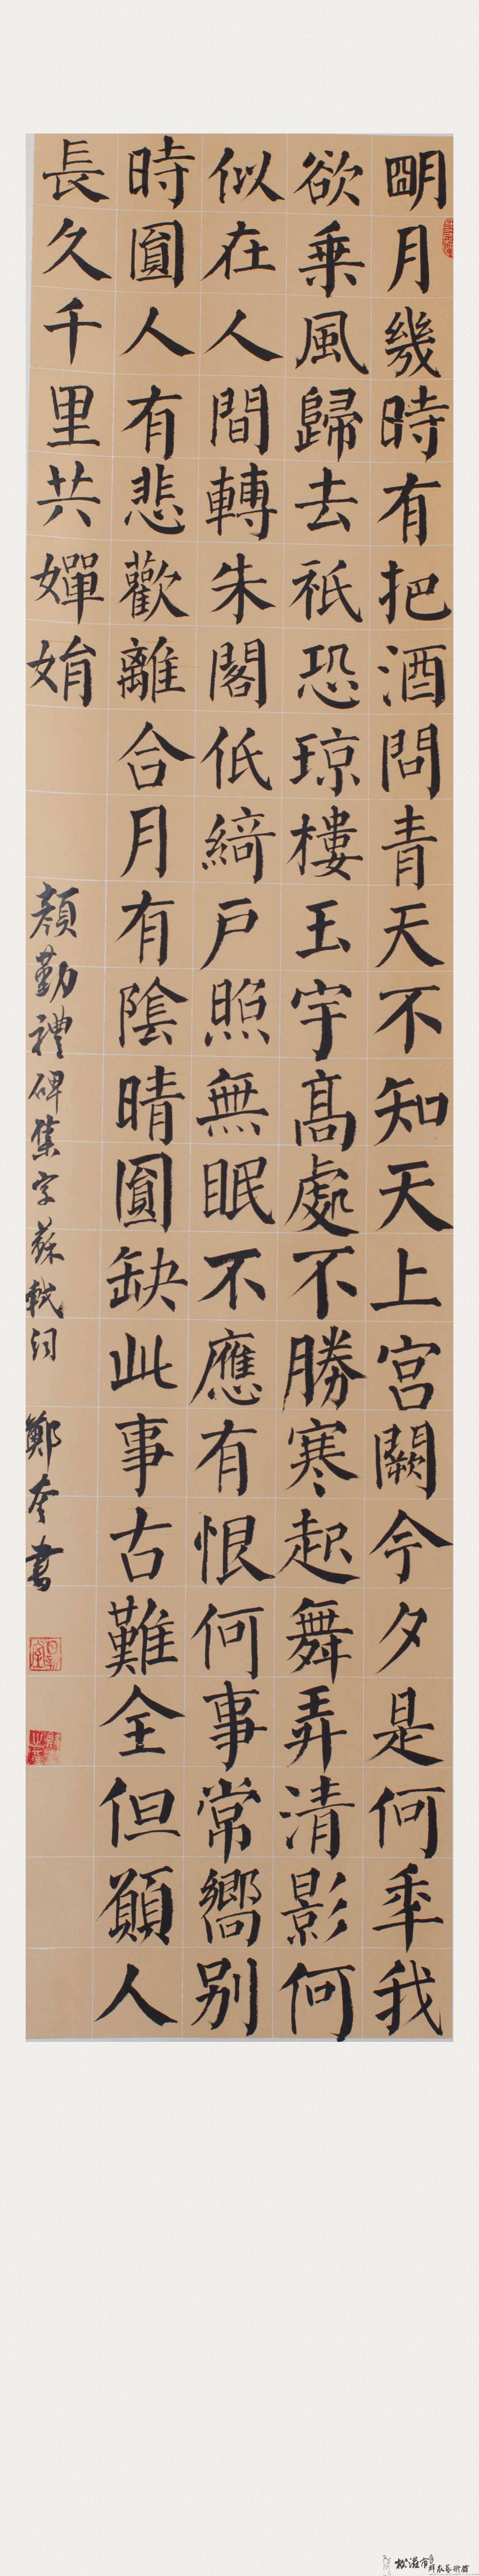 明月幾時有把酒問青天不知天上宫闕今夕是何年我
欲乗風歸去祇恐琼樓玉宇髙處不勝寒起舞弄清影何
似在人間轉朱閣低綺户照無眠不應有恨何事常嚮别
時圓人有悲歡離合月有陰晴圓缺此事古難全但願人
長久千里共嬋娟
顏勤禮碑集字蘇軾词
鄭奎書